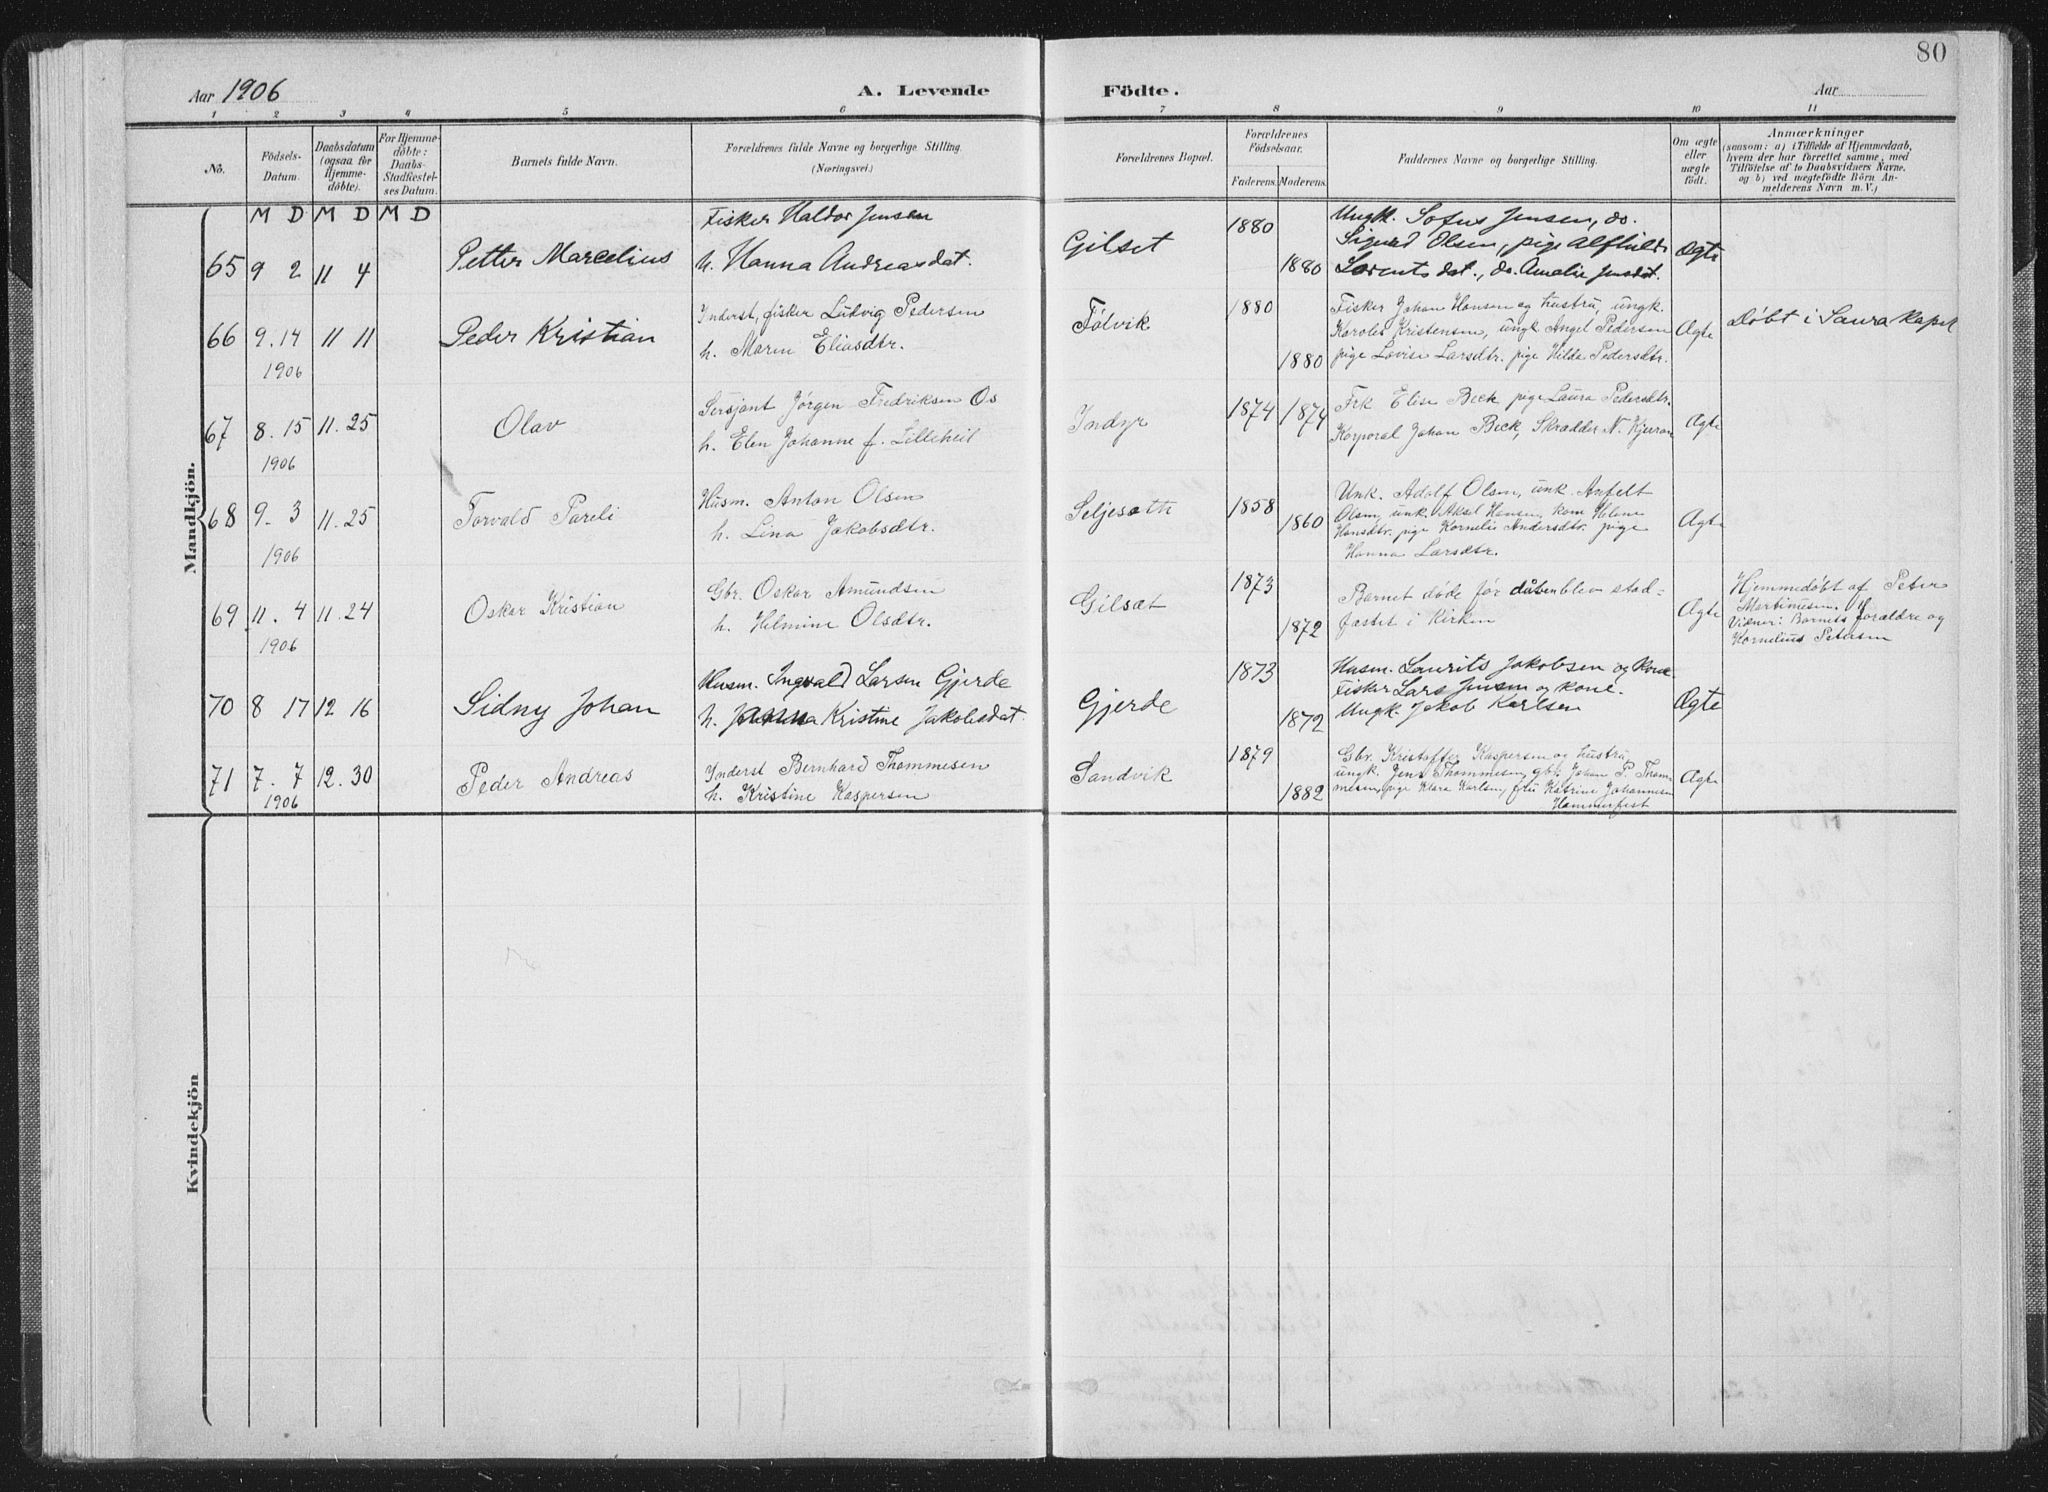 80
Aar 1906
A. Levende
Födte.
Aar
1 2 3 4 5 6 7 8 9 10 11
No.
Födsels-Datum.
Daabsdatum (ogsaa for Hjemme-döbte).
For Hjemme-döbte: Daabs-Stadfæstel-ses Datum.
Barnets fulde Navn.
Forældrenes fulde Navne og borgerlige Stilling.
(Næringsvei.)
Forældrenes Bopæl.
Forældrenes Födselsaar.
Faderens. Moderens.
Faddernes Navne og borgerlige Stilling.
Om ægte eller uægte födt.
Anmærkninger
(saasom: a) i Tilfælde af Hjemmedaab, hvem der har forrettet samme, med Tilföielse af to Daabsvidners Navne, og b) ved uægtefödte Börn An-melderens Navn m. V.)
Mandkjön.
M D M D M D
65 9 2 11 4 Petter Marcelius
Fisker Haldor Jensen
h. Hanna Andreasdat.
Gilset 1880 1880
Ungk. Sofus Jensen, do.
Sigurd Olsen, pige Alfhild
Lorentsdat., do. Amalie Jensdat.
Ægte
66 9. 14 1906 11 11 Peder Kristian
Inderst, fisker Ludvig Pedersen
h. Maren Eliasdtr.
Følvik 1880 1880
Fisker Johan Hansen og hustru, ungk.
Karoles Kristensen, ungk Angel Pedersen
pige Lovise Larsdtr. pige Hilda Pedersdtr.
Ægte
Døbt i Saura kapel
67 8. 15 1906 11. 25 Olav
Sersjant Jörgen Fredriksen Os
h. Elen Johanne f. Lilleheil
Indyr 1874 1874
Frk Elise Beck pige Laura Pedersdtr.
Korporal Johan Beck, Skrædder N. Kjerran
Ægte
68 9. 3 1906 11. 25 Torvald Pareli
Husm. Anton Olsen
h. Lina Jakobsdtr.
Seljesæth 1858 1860
Unk. Adolf Olsen, unk. Anfelt
Olsen, unk. Aksel Hansen, kone Helene
Hansdtr. pige Kornelie Andersdtr. pige
Hanna Larsdtr.
Ægte
69 11. 4 1906 11. 24 Oskar Kristian
Gbr. Oskar Amundsen
h. Helmine Olsdtr.
Gilsæt 1873 1872
Barnet døde før dåben blev stad=
fæstet i Kirken
Ægte
Hjemmedøbt af Peter
Martinusen.
Vidner: Barnets forældre og
Kornelius Petersen
70 8 17 12 16 Sidny Johan
Husm. Ingvald Larsen Gjerde
h. Kristine Jakobsdat.
Gjerde 1873 1872
Husm. Laurits Jakobsen og kone
Fisker Lars Jensen og kone.
Ungk. Jakob Karlsen
Ægte
71 7. 7 1906 12. 30 Peder Andreas
Inderst Bernhard Thommesen
h. Kristine Kaspersen
Sandvik 1879 1882
Gbr. Kristoffer Kaspersen og hustru
ungk. Jens Thommesen, gbr. Johan P. Thom-
mesen, pige Klara Karlsen, fru Katrine Johannesen
Hammerfest
Ægte
Kvindekjön